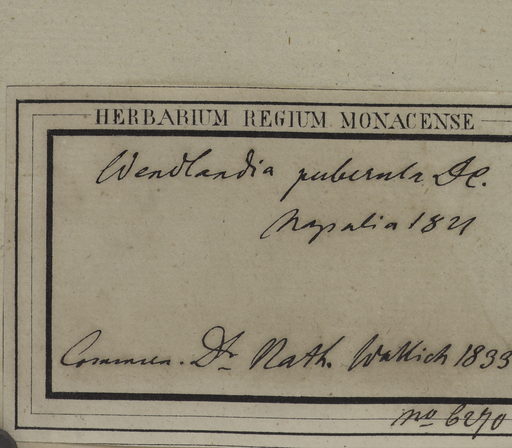 HERBARIUM REGIUM MONACENSE
Wendlandia puberula DC.
Napalia 1821
Commun. Dr Nath. Wallich 1833
no 6270